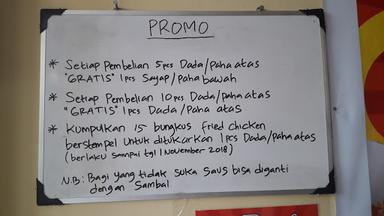 PROMO
* Setiap Pembelian 5 pcs Dada/Paha atas
"GRATIS" 1 pcs Sayap/Paha bawah
* Setiap Pembelian 10 pcs Dada/Paha atas
"GRATIS" 1 pcs Dada/Paha atas
* Kumpulkan 15 bungkus fried chicken
berstempel untuk ditukarkan 1 pcs Dada/Paha atas
(berlaku sampai tgl 1 November 2018)
N.B: Bagi yang tidak suka saus bisa diganti
dengan Sambal